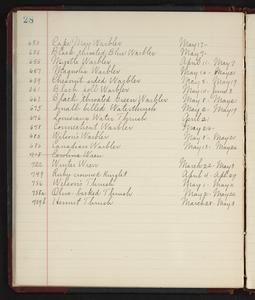 28
650 Cape May Warbler May 17 -
655 Black throated Blue Warbler May 7 -
655 Myrtle Warbler April 11 - May 7
657 Magnolia Warbler May 10 - May
659 Chestnut sided Warbler May 5 - May 19
661 Black poll Warbler May 10 - June 2
667 Black throated Green Warbler May 8 - May
675 Small billed Waterthrush May 2 - May 19
676 Louisiana Water Thrush April 21
678 Connecticut Warbler May 25 -
685 Wilson's Warbler May 8 - May 25
686 Canadian Warbler May 12 - May 26
718 Carolina Wren
722 Winter Wren March 22 - May 3
749 Ruby crowned Kinglet April 4 - Apl 29
756 Wilson's Thrush May 1 - May
758a Olive-backed Thrush May 2 - May 26
759b Hermit Thrush March 28 - May 3